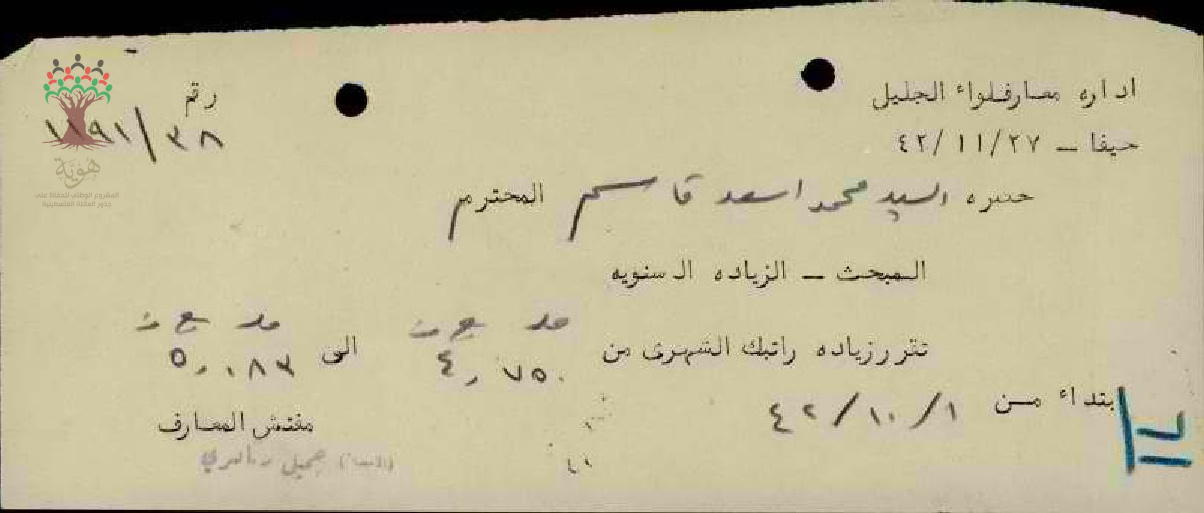 اداره معارف لواء الجليل
رقم ١١٩١/٣٨
حيفا ـ ٤٢/١١/٢٧
هوية
المشروع الوطني للحفاظ على
جذور العائلة الفلسطينية
حضره السيد محمد اسعد قاسم المحترم
المبحث ـ الزياده السنويه
تقرر زياده راتبك الشهرى من ٤,٧٥٠ الى ٥,٠٨٣
بتداء من ٤٢/١٠/١
مفتش المعارف
(الامضاء) جميل